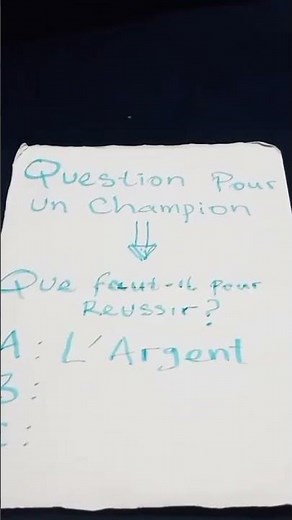 Question Pour
un Champion
Que faut-il pour
Reussir?
A: L'Argent
B:
C: